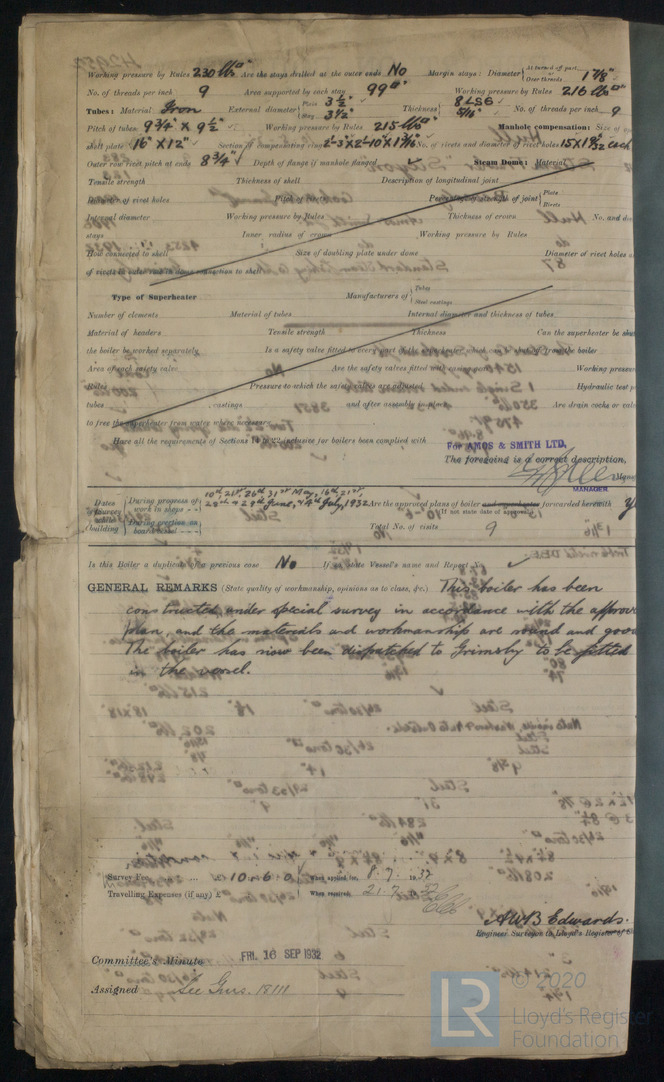 Working pressure by Rules 230 lbs □" Are the stays drilled at the outer ends No Margin stays: Diameter { At turned off part, or Over threads 1 7/8"
No. of threads per inch 9 Area supported by each stay 99 □" Working pressure by Rules 216 lbs □"
Tubes: Material Iron External diameter { Plain 3 1/2" Stay 3 1/2" Thickness { 8 LSG 5/16" No. of threads per inch 9
Pitch of tubes 9 3/4" x 9 1/2" Working pressure by Rules 215 lbs □" Manhole compensation: Size of
shell plate 16" x 12" Section of compensating ring No. of rivets and diameter of rivet holes 15 x 1 9/32 each
Outer row rivet pitch at ends 8 3/4" Depth of flange if manhole flanged ✓ Steam Dome: Material
Tensile strength Thickness of shell Description of longitudinal joint
Diameter of rivet holes Pitch of rivets Percentage of strength of joint { Plate Rivets
Internal diameter Working pressure by Rules Thickness of crown No. and
stays Inner radius of crown Working pressure by Rules
How connected to shell Size of doubling plate under dome Diameter of rivet holes
of rivets in outer row in dome connection to shell
Type of Superheater Manufacturers of { Tubes Steel castings
Number of elements Material of tubes Internal diameter and thickness of tubes
Material of headers Tensile strength Thickness Can the superheater be
the boiler be worked separately Is a safety valve fitted to every part of the superheater which can be shut off from the boiler
Area of each safety valve Are the safety valves fitted with easing gear Working
Rules Pressure to which the safety valves are adjusted Hydraulic test
tubes castings and after assembly in place Are drain cocks or
to free the superheater from water where necessary
Have all the requirements of Sections 16 to 22 inclusive for boilers been complied with
For AMOS & SMITH LTD.
The foregoing is a correct description,
MANAGER
Dates of Survey while building { During progress of work in shops - - 10th, 21st, 26th, 31st May, 16th, 21st,
28th & 29th June, & 4th July, 1932 Are the approved plans of boiler and superheater forwarded herewith
During erection on board vessel - - - (If not state date of approval.)
Total No. of visits 9
Is this Boiler a duplicate of a previous case No If so, state Vessel's name and Report No. ✓
GENERAL REMARKS (State quality of workmanship, opinions as to class, &c.) This boiler has been
constructed under special survey in accordance with the
plan, and the materials and workmanship are sound and
The boiler has now been dispatched to Grimsby to be fitted
in the vessel.
Survey Fee £10 : 6 : 0 When applied for, 8.7.1932
Travelling Expenses (if any) £ When received, 21.7.1932
AWB Edwards.
Engineer Surveyor to Lloyd's Register of
Committee's Minute FRI. 16 SEP 1932
Assigned See Grms. 18111
© 2020
LR Lloyd's Register
Foundation